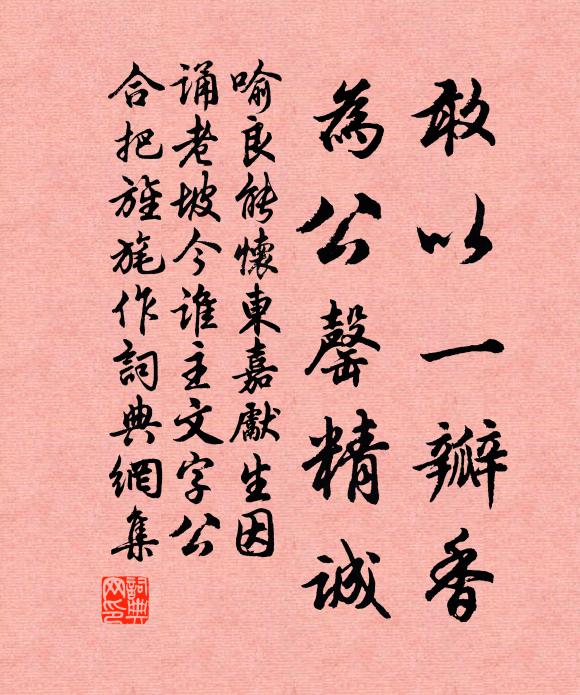 敢以一瓣香
為公罄精誠
喻良能懷東嘉獻生因
誦老坡今誰主文字公
合把旌旄作詞典網集
詞典網印